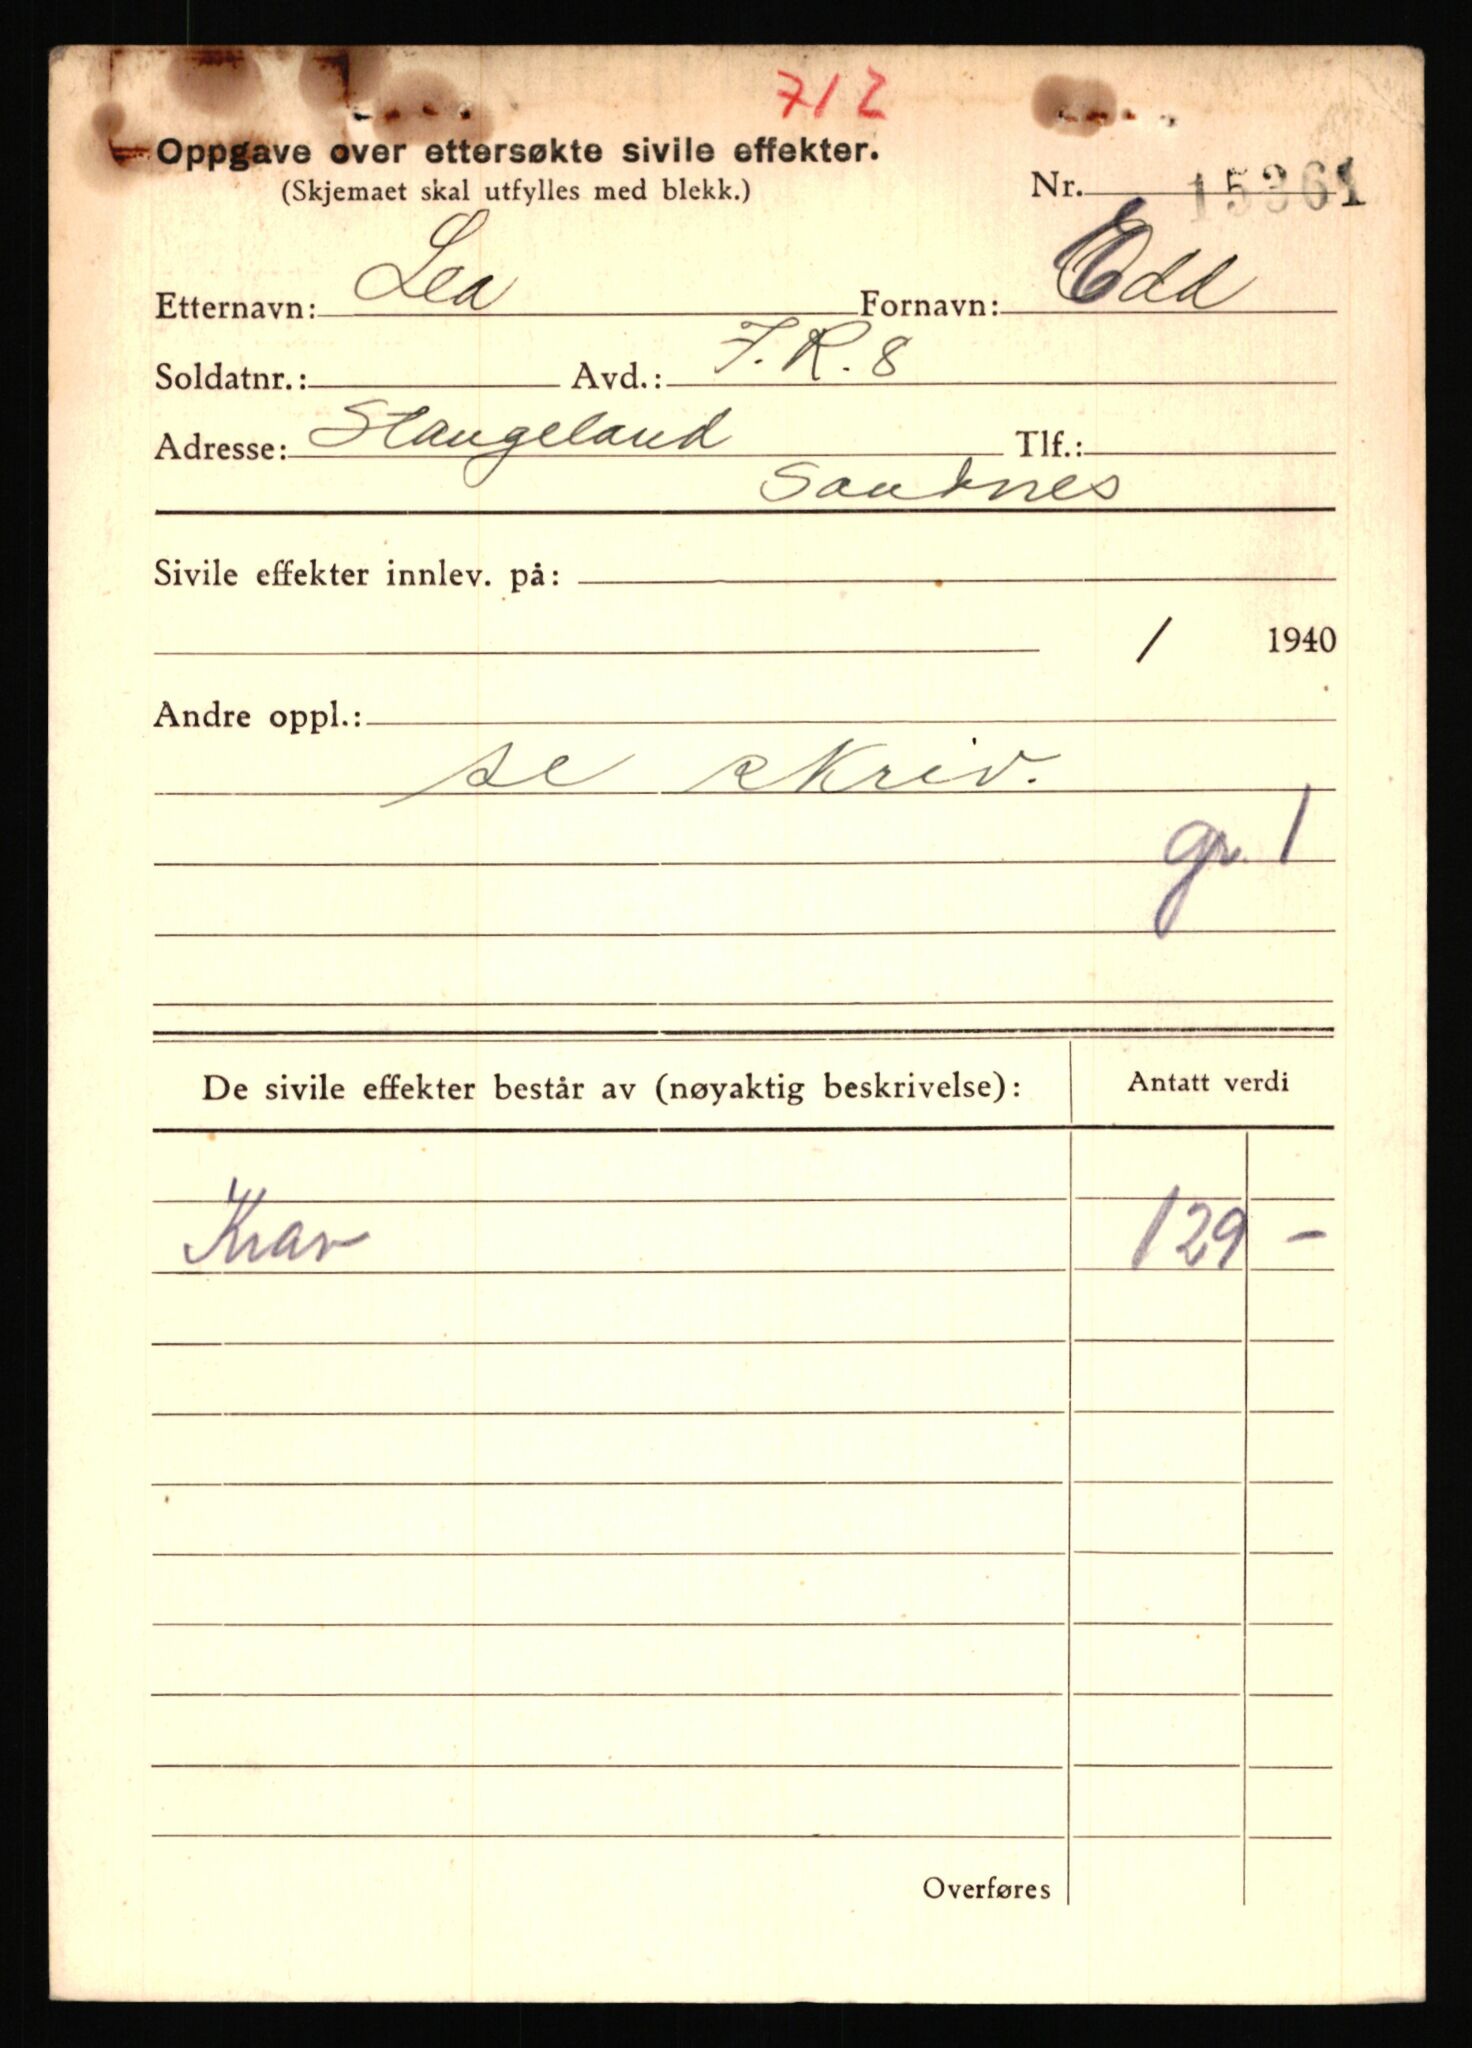 712
Oppgave over ettersøkte sivile effekter.
(Skjemaet skal utfylles med blekk.)
Nr. 15361
Etternavn: Lea Fornavn: Edd
Soldatnr.: Avd.: I.R. 8
Adresse: Stangeland Tlf.:
Sandnes
Sivile effekter innlev. på:
/ 1940
Andre oppl.:
se skriv.
gr. 1
De sivile effekter består av (nøyaktig beskrivelse): Antatt verdi
Krav 129 -
Overføres